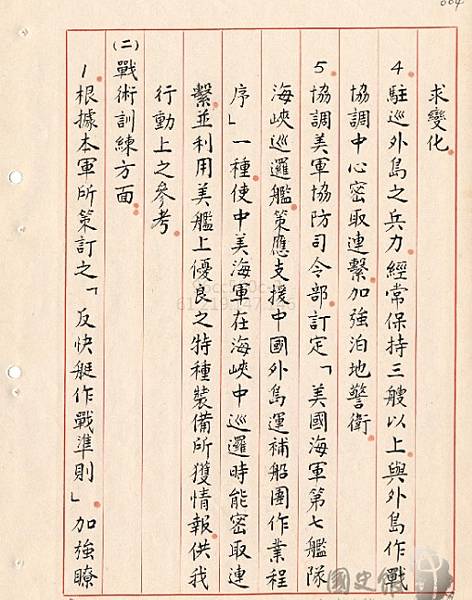 004
求變化。
4.駐巡外島之兵力。經常保持三艘以上。與外島作戰
協調中心密取連繫。加強泊地警衛。
5.協調美軍協防司令部。訂定「美國海軍第七艦隊
海峽巡邏艦。策應支援中國外島運補船團作業程
序」一種。使中美海軍在海峽中巡邏時能密取連
繫。並利用美艦上優良之特種裝備所獲情報。供我
行動上之參考。
(二)戰術訓練方面。
1.根據本軍所策訂之「反快艇作戰準則」。加強瞭
國史館